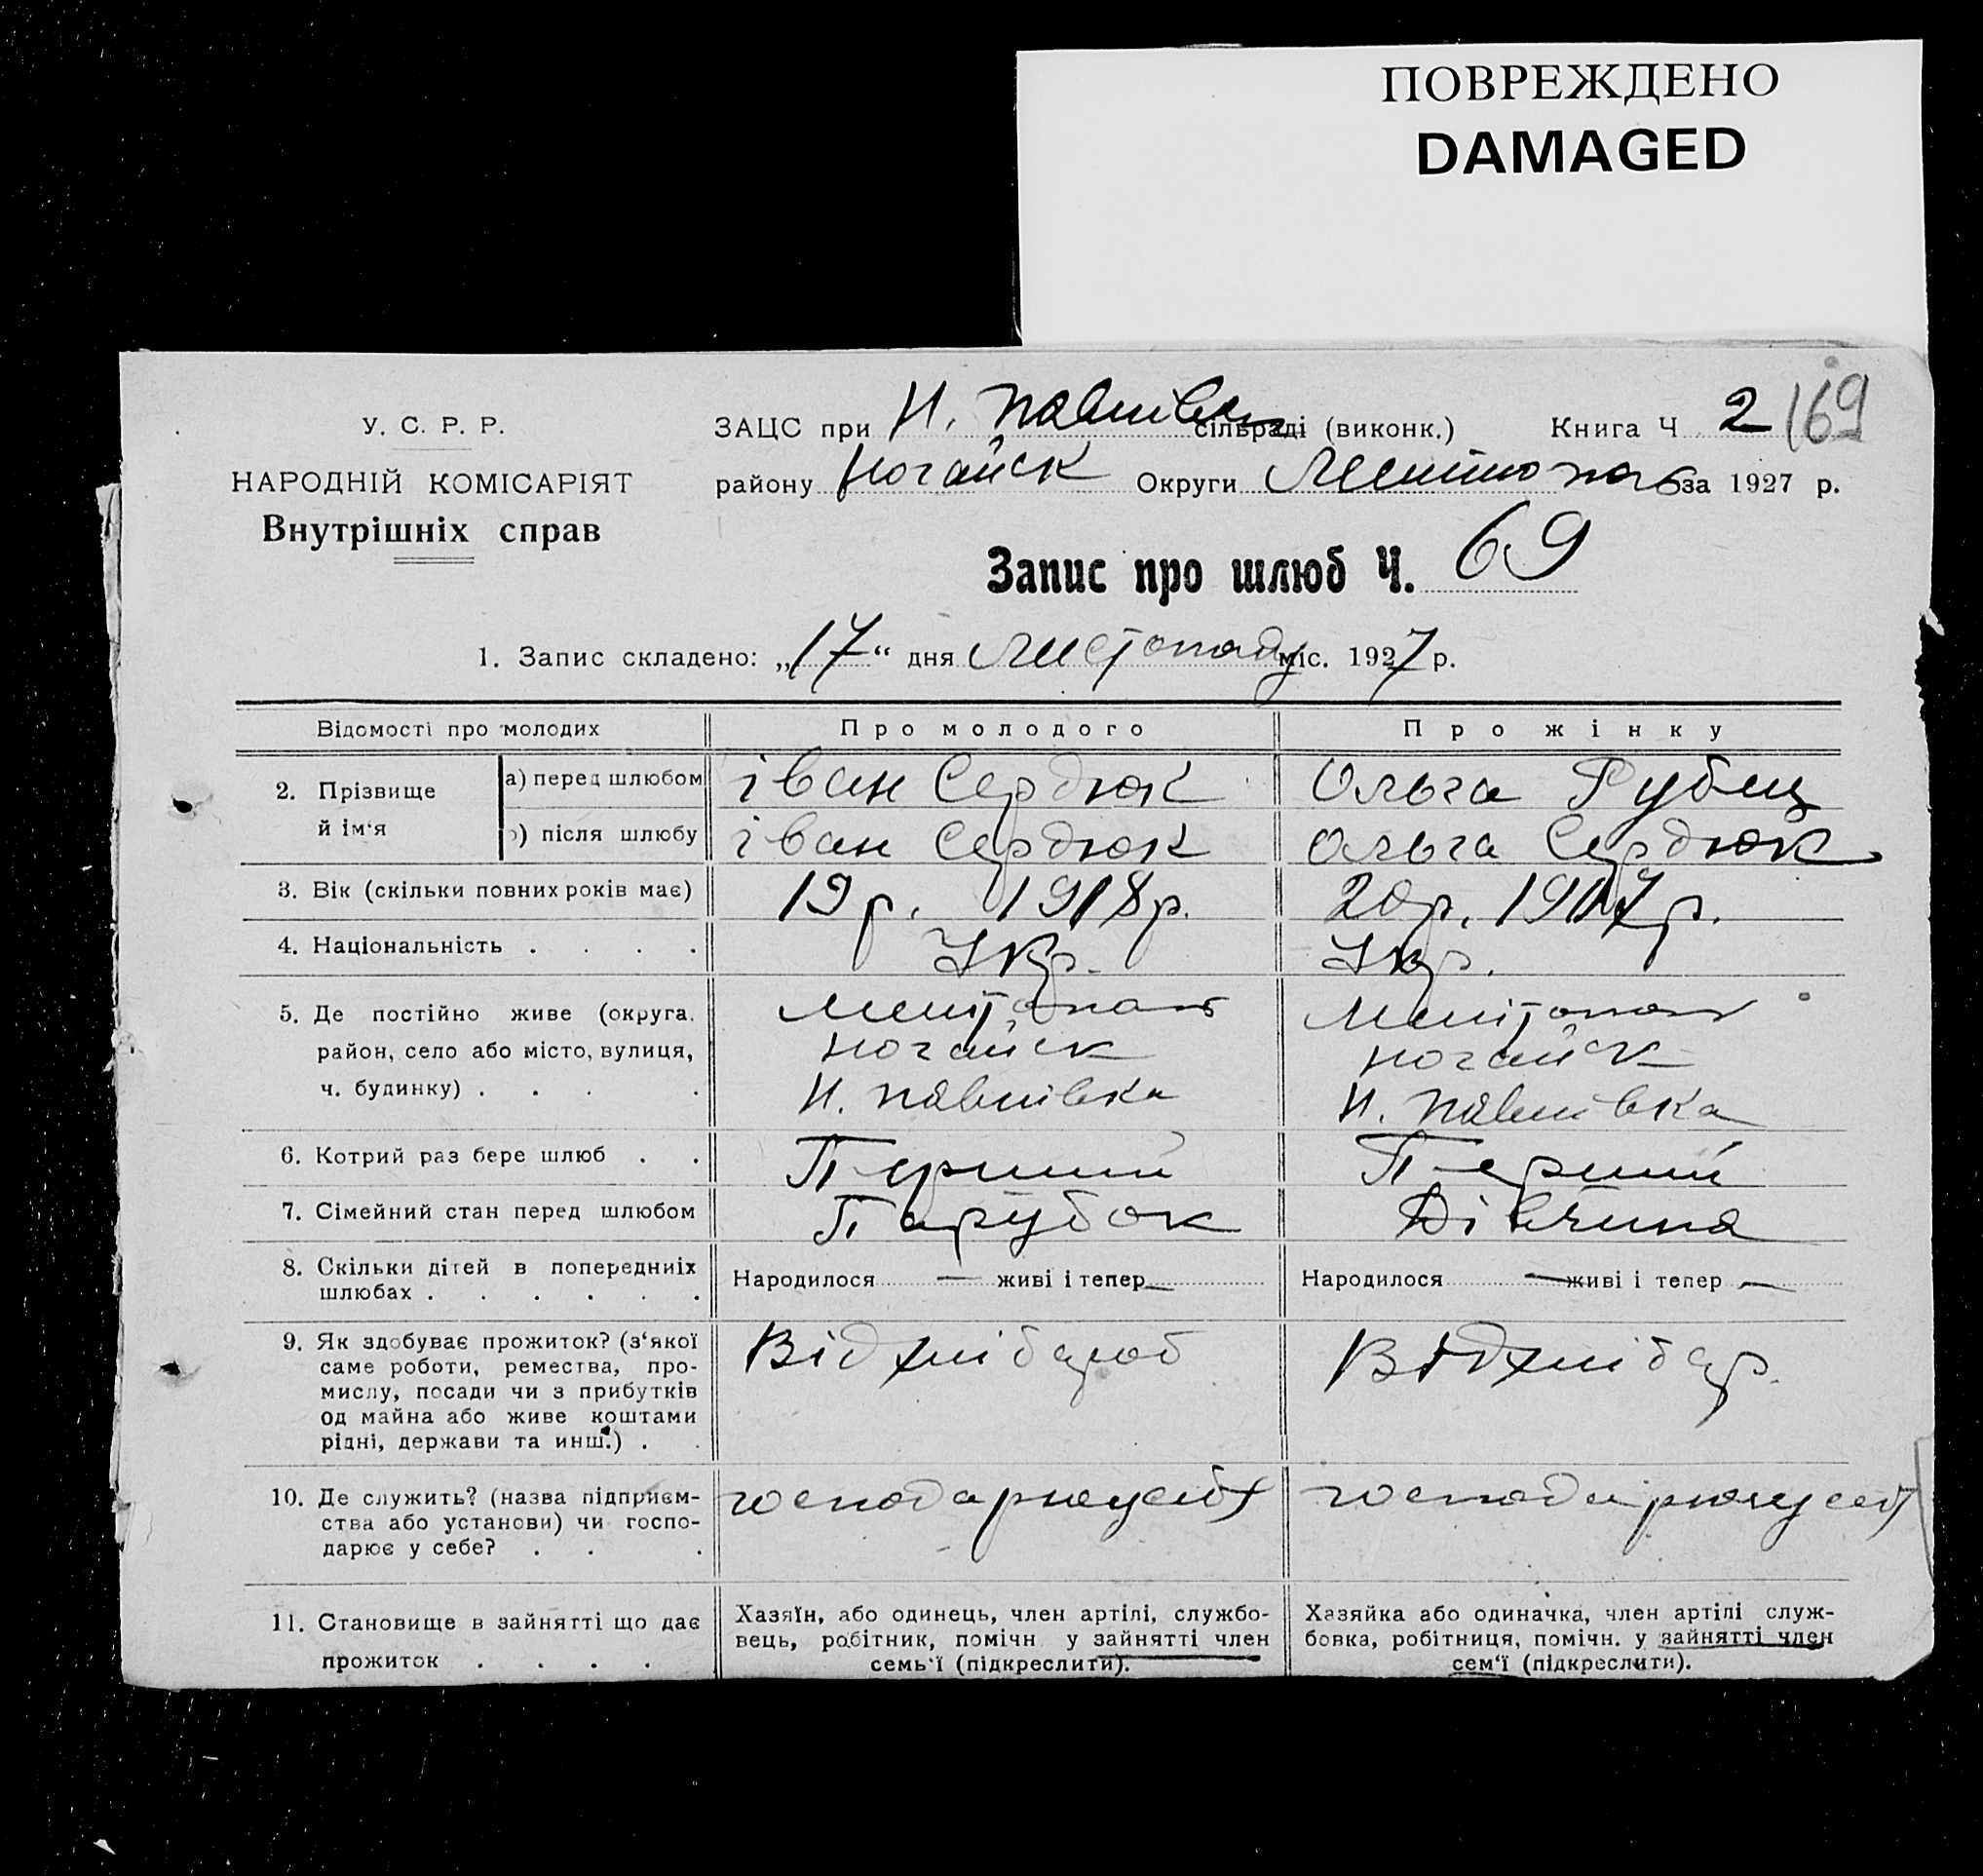 ПОВРЕЖДЕНО
DAMAGED
У. С. Р. Р.
НАРОДНІЙ КОМІСАРІЯТ
Внутрішніх справ
ЗАЦС при Н. Павлівка сільраді (виконк.) Книга Ч 2 169
району Ногайск Округи за 1927 р.
Запис про шлюб Ч. 69
1. Запис складено: „17“ дня Листопаду міс. 1927 р.
Відомості про молодих Про молодого Про жінку
2. Прізвище й ім‘я
а) перед шлюбом іван Сердюк Ольга Рубец
) після шлюбу іван Сердюк Ольга Сердюк
3. Вік (скільки повних років має) 19 р. 1918 р. 20 р. р.
4. Національність . . . . Укр. Укр.
5. Де постійно живе (округа, Мелітопол Мелітопол
район, село або місто, вулиця, Ногайск Ногайск
ч. будинку) . . . . Н. Павлівка Н. Павлівка
6. Котрий раз бере шлюб . . Перший Перший
7. Сімейний стан перед шлюбом Парубок Дівчина
8. Скільки дітей в попередниіх
шлюбах . . . . . .
Народилося — живі і тепер — Народилося — живі і тепер —
9. Як здобуває прожиток? (з‘якої Від хлібороб Від хлібор.
саме роботи, ремества, про-
мислу, посади чи з прибутків
од майна або живе коштами
рідні, держави та инш.) . .
10. Де служить? (назва підприєм- господарює у себе господарює у себе
ства або установи) чи госпо-
дарює у себе? . . .
11. Становище в зайнятті що дає
прожиток . . . .
Хазяїн, або одинець, член артілі, службо-
вець, робітник, помічн у зайнятті член
семь‘ї (підкреслити).
Хазяйка або одиначка, член артілі служ-
бовка, робітниця, помічн. у зайнятті член
сем‘ї (підкреслити).